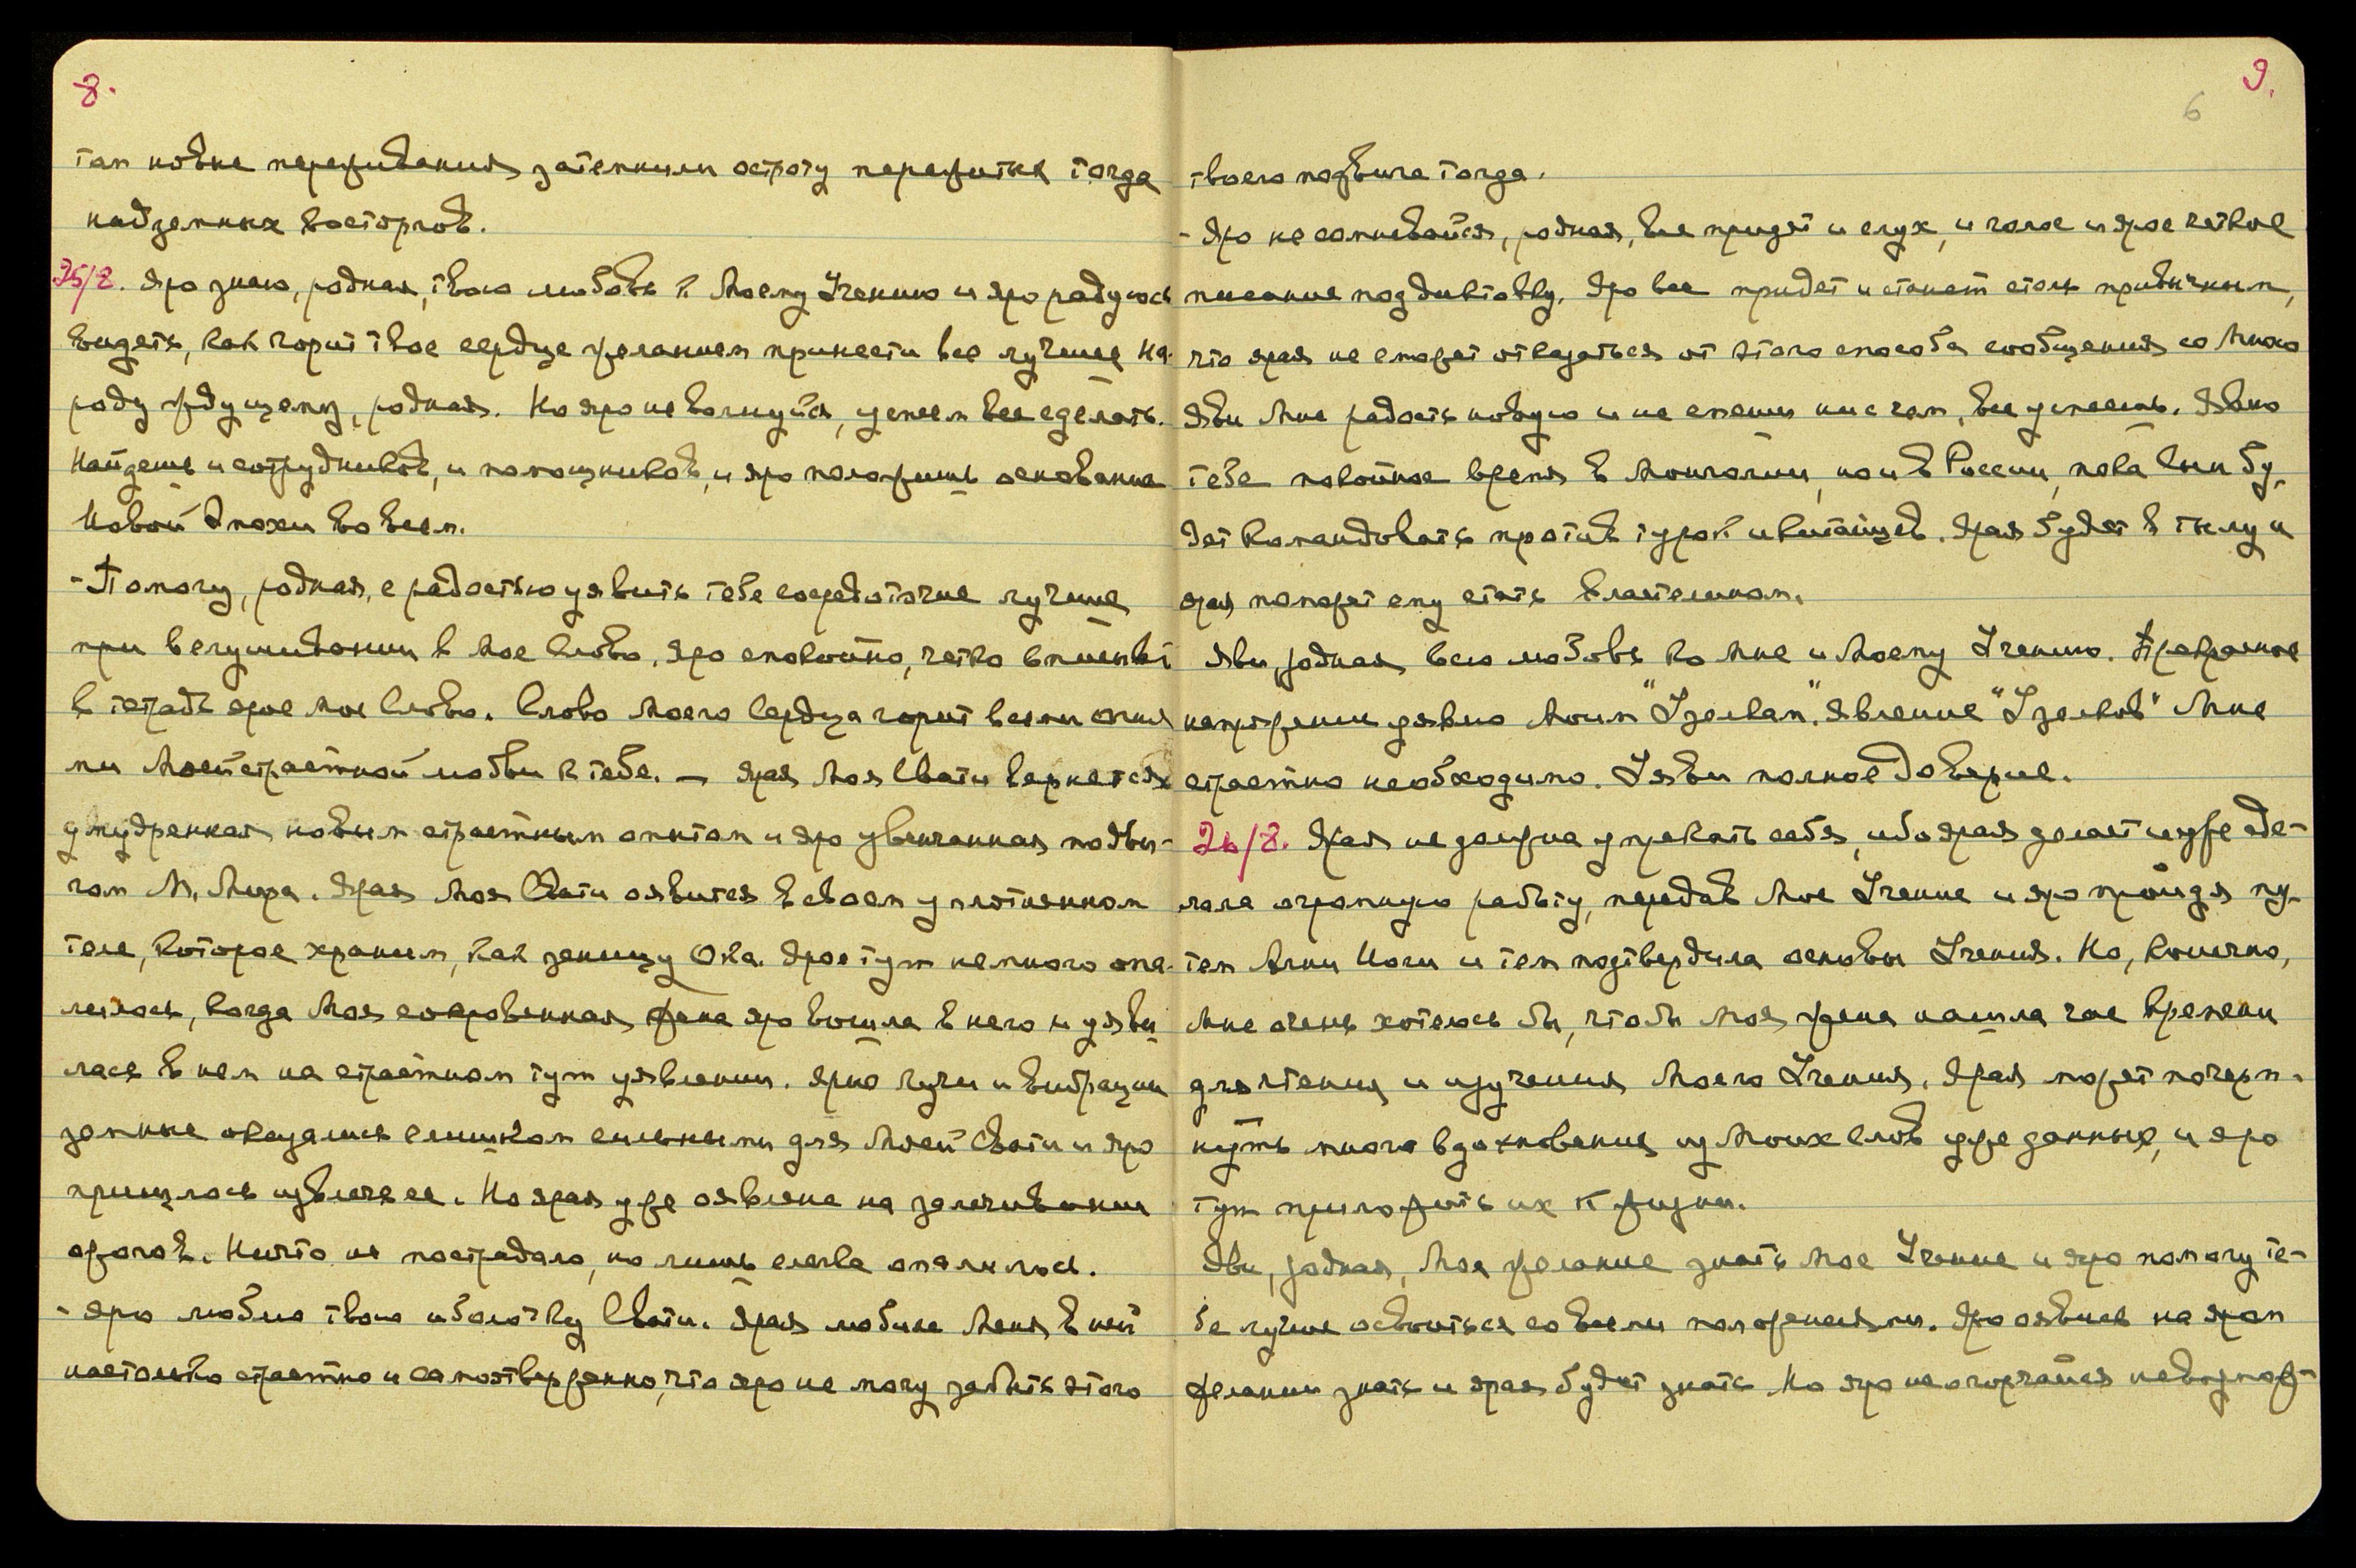 8.
там новые переживания затемнили остроту пережитых тогда
надземных восторгов.
25/8. Яро знаю, родная, твою любовь к Моему Учению и яро радуюсь
видеть, как горит твое сердце желанием принести все лучшее на-
роду ждущему, родная. Но яро не волнуйся, успеем все сделать.
Найдешь и сотрудников, и помощников, и яро положишь основание
Новой Эпохи во всем.
- Помогу, родная, с радостью уявить тебе сосредоточие лучшее
при вслушивании в Мое Слово. Яро спокойно, четко впиши
в тетрадь ярое Мое Слово. Слово Моего Сердца горит всеми огня
ми Моей страстной любви к тебе. — Ярая Моя Свати вернется
умудренная новым страстным опытом и яро увенчанная подви-
гом М. Мира. Ярая Моя Свати оявится в своем уплотненном
теле, которое храним, как зеницу Ока. Ярое тут немного опа-
лилось, когда Моя сокровенная жена яро вошла в него и уяви
лась в нем на страстном тут уявлении. Ярко лучи и вибрации
земные оказались слишком сильными для Моей Свати и яро
пришлось извлечь ее. Но ярая уже оявлена на залечивании
ожогов. Ничто не пострадало, но лишь слегка опалилось.
- Яро люблю твою оболочку Свати. Ярая любила Меня в ней
настолько страстно и самоотверженно, что яро не могу забыть этого
9.
6
твоего подвига тогда.
- Яро не сомневайся, родная, все придет и слух, и голос и ярое четкое
писание под диктовку. Яро все придет и станет столь привычным,
что ярая не сможет отказаться от этого способа сообщения со Мною
Яви Мне радость новую и не спеши ни с чем, все успеешь. Явлю
тебе покойное время в Монголии, но и в России, пока Сын бу-
дет командовать против турок и китайцев. Ярая будет в тылу и
ярая поможет ему стать Властелином.
Яви, родная всю любовь ко Мне и Моему Учению. Прекрасное
напряжение уявлю Моим "Узелкам". Явление "Узелков" Мне
страстно необходимо. Уяви полное доверие.
26/8. Ярая не должна упрекать себя, ибо ярая делает и уже сде-
лала огромную работу, передав Мое Учение и яро пройдя пу-
тем Агни Йоги и тем подтвердила основы Учения. Но, конечно,
Мне очень хотелось бы, чтобы Моя жена нашла час времени
для чтения и изучения Моего Учения. Ярая может почерп-
нуть много вдохновения из Моих Слов уже данных, и яро
тут приложить их к жизни.
Яви, родная, Мое желание знать Мое Учение и яро помогу те-
бе лучше освоиться со всеми положениями. Яро оявись на яром
желании знать и ярая будет знать Но яро не огорчайся невозмож-